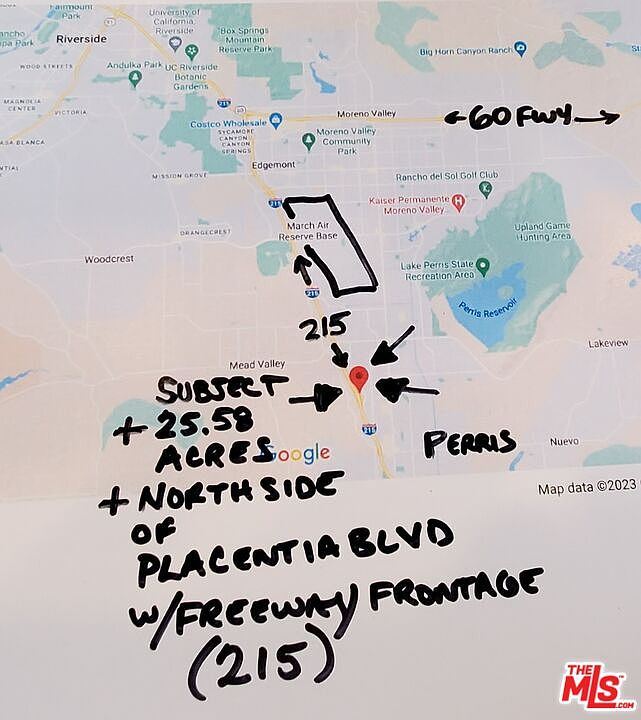 Fairmount
Park
University of
California,
Riverside
Box Springs
Mountain
Reserve Park
Riverside
Big Horn Canyon Ranch
WOOD STREETS
Andulka Park
UC Riverside
Botanic
Gardens
MAGNOLIA
CENTER
VICTORIA
215
60
Moreno Valley
60 FWY
Costco Wholesale
SYCAMORE
CANYON
CANYON
SPRINGS
Moreno Valley
Community
Park
CASA BLANCA
Edgemont
MISSION GROVE
Rancho del Sol Golf Club
Kaiser Permanente
Moreno Valley
215
March Air
Reserve Base
ORANGECREST
Upland Game
Hunting Area
Woodcrest
Lake Perris State
Recreation Area
215
Perris Reservoir
215
Lakeview
Mead Valley
SUBJECT
+ 25.58
ACRES
215
Google
PERRIS
Nuevo
Map data ©2023
+ NORTH SIDE
OF
PLACENTIA BLVD
W/FREEWAY FRONTAGE
(215)
THE
MLS
.COM